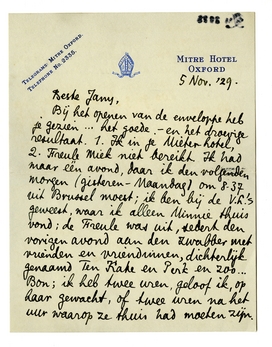 TELEGRAMS-MITRE OXFORD.
TELEPHONE No. 3335.
MITRE HOTEL
OXFORD
5 Nov. '29.
Beste Jany,
Bij het openen van de enveloppe heb
je gezien ... het goede - en het droevige
resultaat. 1. Ik in je Mieter-hotel,
2. Freule Miek niet bereikt. Ik had
maar één avond, daar ik den volgenden
morgen (gisteren - Maandag) om 8.37
uit Brussel moest; ik ben bij de V.R.'s
geweest, waar ik alleen Minnie thuis
vond; de Freule was uit, sedert den
vorigen avond aan den zwabber met
vrienden en vriendinnen, dichterlijk
genaamd Ten Kate en Perk en zoo...
Bon; ik heb twee uren, geloof ik, op
haar gewacht, of twee uren na het
uur waarop ze thuis had moeten zijn.